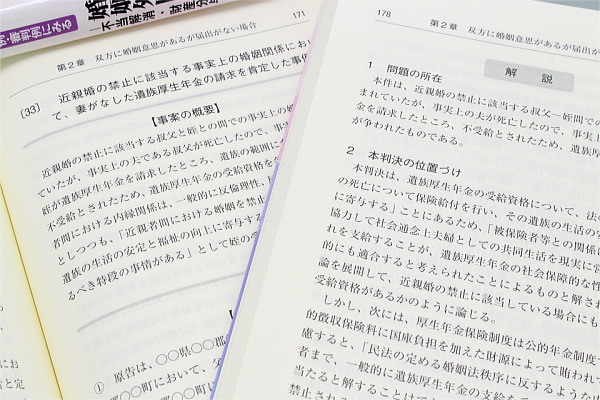 例・審判例にみる
婚姻外
不当解消・財産分
171
第2章 双方に婚姻意思があるが届出がない場合
［33］ 近親婚の禁止に該当する事実上の婚姻関係にお
て、妻がなした遺族厚生年金の請求を肯定した事
【事案の概要】
近親婚の禁止に該当する叔父と姪との間での事実上の婚
ていたが、事実上の夫である叔父が死亡したので、事実
姪が遺族厚生年金を請求したところ、遺族の範囲に
不受給とされたため、遺族厚生年金の受給資格を
者間における内縁関係は、一般的に反倫理性、
としつつも、「近親者間における婚姻を禁止
遺族の生活の安定と福祉の向上に寄与する
るべき特段の事情がある」として姪の受
【
① 原告は、〇〇県〇〇郡
郡〇〇町において、父
〇〇町
にお
者と定
178
第2章 双方に婚姻意思があるが届出が
解説
1 問題の所在
本件は、近親婚の禁止に該当する叔父―姪間での
まれていたが、事実上の夫が死亡したので、事実上
金を請求したところ、不受給とされたため、遺族厚
が争われたものである。
2 本判決の位置づけ
本判決は、遺族厚生年金の受給資格について、法の
の死亡について保険給付を行い、その遺族の生活の安
に寄与する」ことにあるため、「被保険者等との関係に
協力して社会通念上夫婦としての共同生活を現実に営
れを支給することが、遺族厚生年金の社会保障的な性
的にも適合すると考えられたことによるものと解され
論を展開して、近親婚の禁止に該当している場合にも
受給資格があるかのように論じる。
しかし、次には、厚生年金保険制度は公的年金制度
的徴収保険料に国庫負担を加えた財源によって賄われて
慮すると、「民法の定める婚姻法秩序に反するような内
者まで、一般的に遺族厚生年金の支給を
当たると解することはで
禁止される